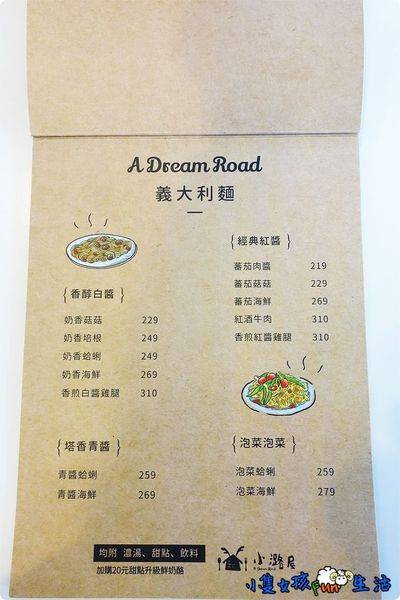 A Dream Road
義大利麵
香醇白醬
奶香菇菇 229
奶香培根 249
奶香蛤蜊 249
奶香海鮮 269
香煎白醬雞腿 310
經典紅醬
蕃茄肉醬 219
蕃茄菇菇 229
蕃茄海鮮 269
紅酒牛肉 310
香煎紅醬雞腿 310
塔香青醬
青醬蛤蜊 259
青醬海鮮 269
泡菜泡菜
泡菜蛤蜊 259
泡菜海鮮 279
均附 濃湯、甜點、飲料
加購20元甜點升級鮮奶酪
小潞屋
小隻女孩Fun生活